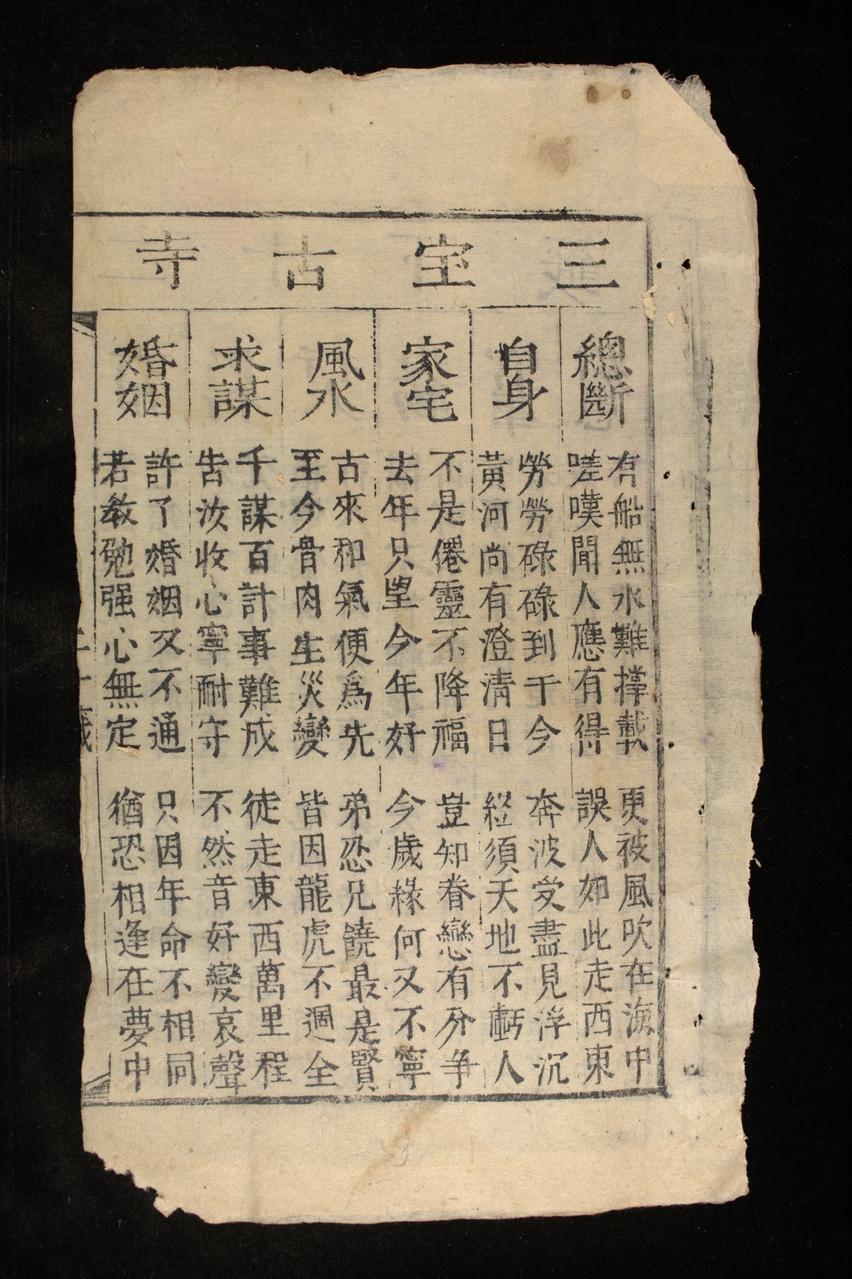 三宝古寺
總斷
有船無水難撐載
更被風吹在海中
嗟嘆聞人應有得
誤人如此走西東
自身
勞勞碌碌到于今
奔波受盡見浮沉
黃河尚有澄清日
經須天地不虧人
家宅
不是僊靈不降福
豈知眷戀有分争
去年只望今年好
今歲緣何又不寧
風水
古來和氣便爲先
弟忍兄饒最是賢
至今骨肉生災變
皆因龍虎不週全
求謀
千謀百計事難成
徒走東西萬里程
告汝收心寧耐守
不然音好變哀聲
婚姻
許了婚姻又不通
只因年命不相同
若教勉强心無定
猶恐相逢在夢中